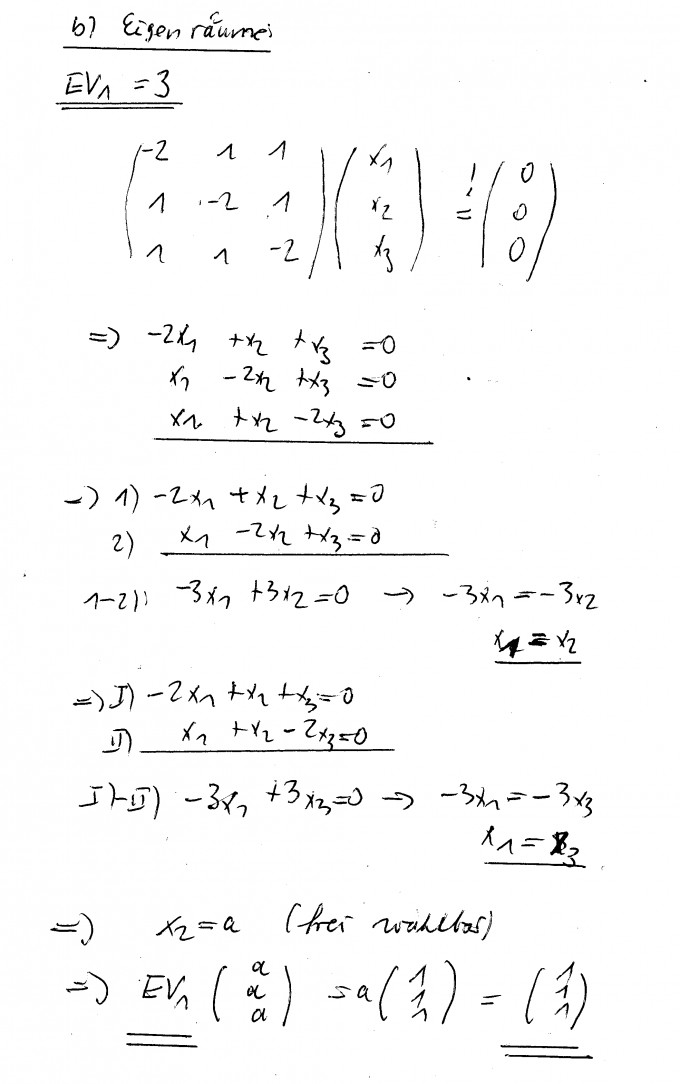 b) Eigenräume:
EV₁ = 3
(-2 1 1) (x₁) ! (0)
(1 -2 1) (x₂) = (0)
(1 1 -2) (x₃) (0)
=> -2x₁ +x₂ +x₃ =0
x₁ -2x₂ +x₃ =0
x₁ +x₂ -2x₃ =0
-> 1) -2x₁ +x₂ +x₃ =0
2) x₁ -2x₂ +x₃ =0
1-2): -3x₁ +3x₂ =0 -> -3x₁ = -3x₂
x₁ = x₂
=> I) -2x₁ +x₂ +x₃ =0
II) x₁ +x₂ -2x₃ =0
I)-II) -3x₁ +3x₃ =0 -> -3x₁ = -3x₃
x₁ = x₃
=> x₂ = a (frei wählbar)
=> EV₁ (a a a) = a (1 1 1) = (1 1 1)